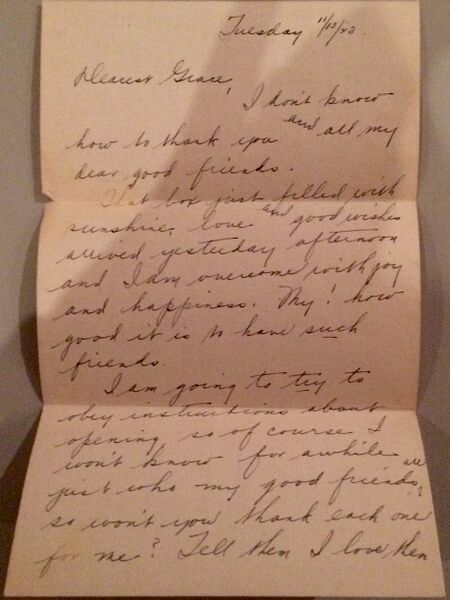 Tuesday 11/13/23.
Dearest Grace,
I don't know
how to thank you and all my
dear good friends.
That box just filled with
sunshine, love and good wishes
arrived yesterday afternoon
and I am overcome with joy
and happiness. My! how
good it is to have such
friends.
I am going to try to
obey instructions about
opening, so of course I
won't know for awhile
just who my good friends all,
so won't you thank each one
for me? Tell them I love them